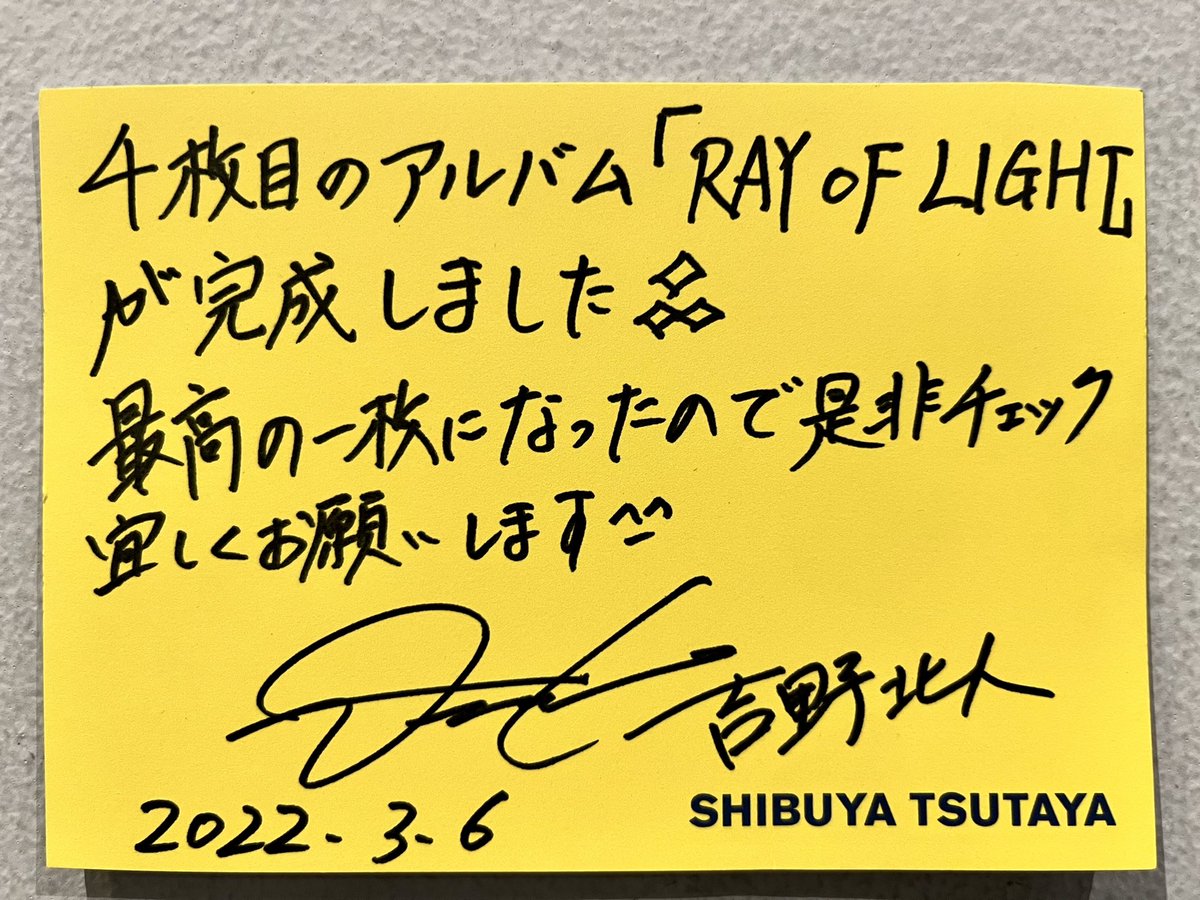 4枚目のアルバム「RAY OF LIGHT」
が完成しました
最高の一枚になったので是非チェック
宜しくお願いします^^
吉野北人
2022.3.6
SHIBUYA TSUTAYA